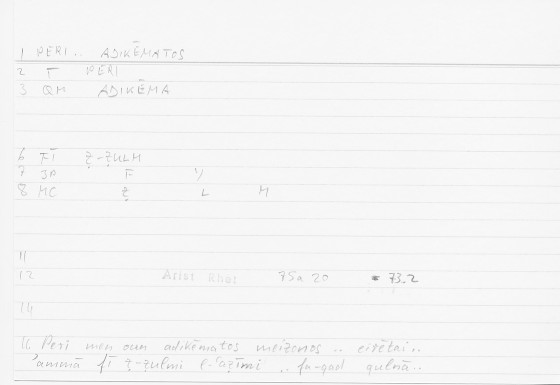 1 PERI .. ADIKĒMATOS
2 T PERI
3 QM ADIKĒMA
6 FĪ Ẓ-ẒULM
7 JP F 1/
8 MC Ẓ L M
11
12 Arist Rhet 75a 20 * 73.2
14
Peri men oun adikēmatos meizonos .. eirētai..
'ammā fī ẓ-ẓulmi l-ʿaẓīmi .. fa-qad qulnā..